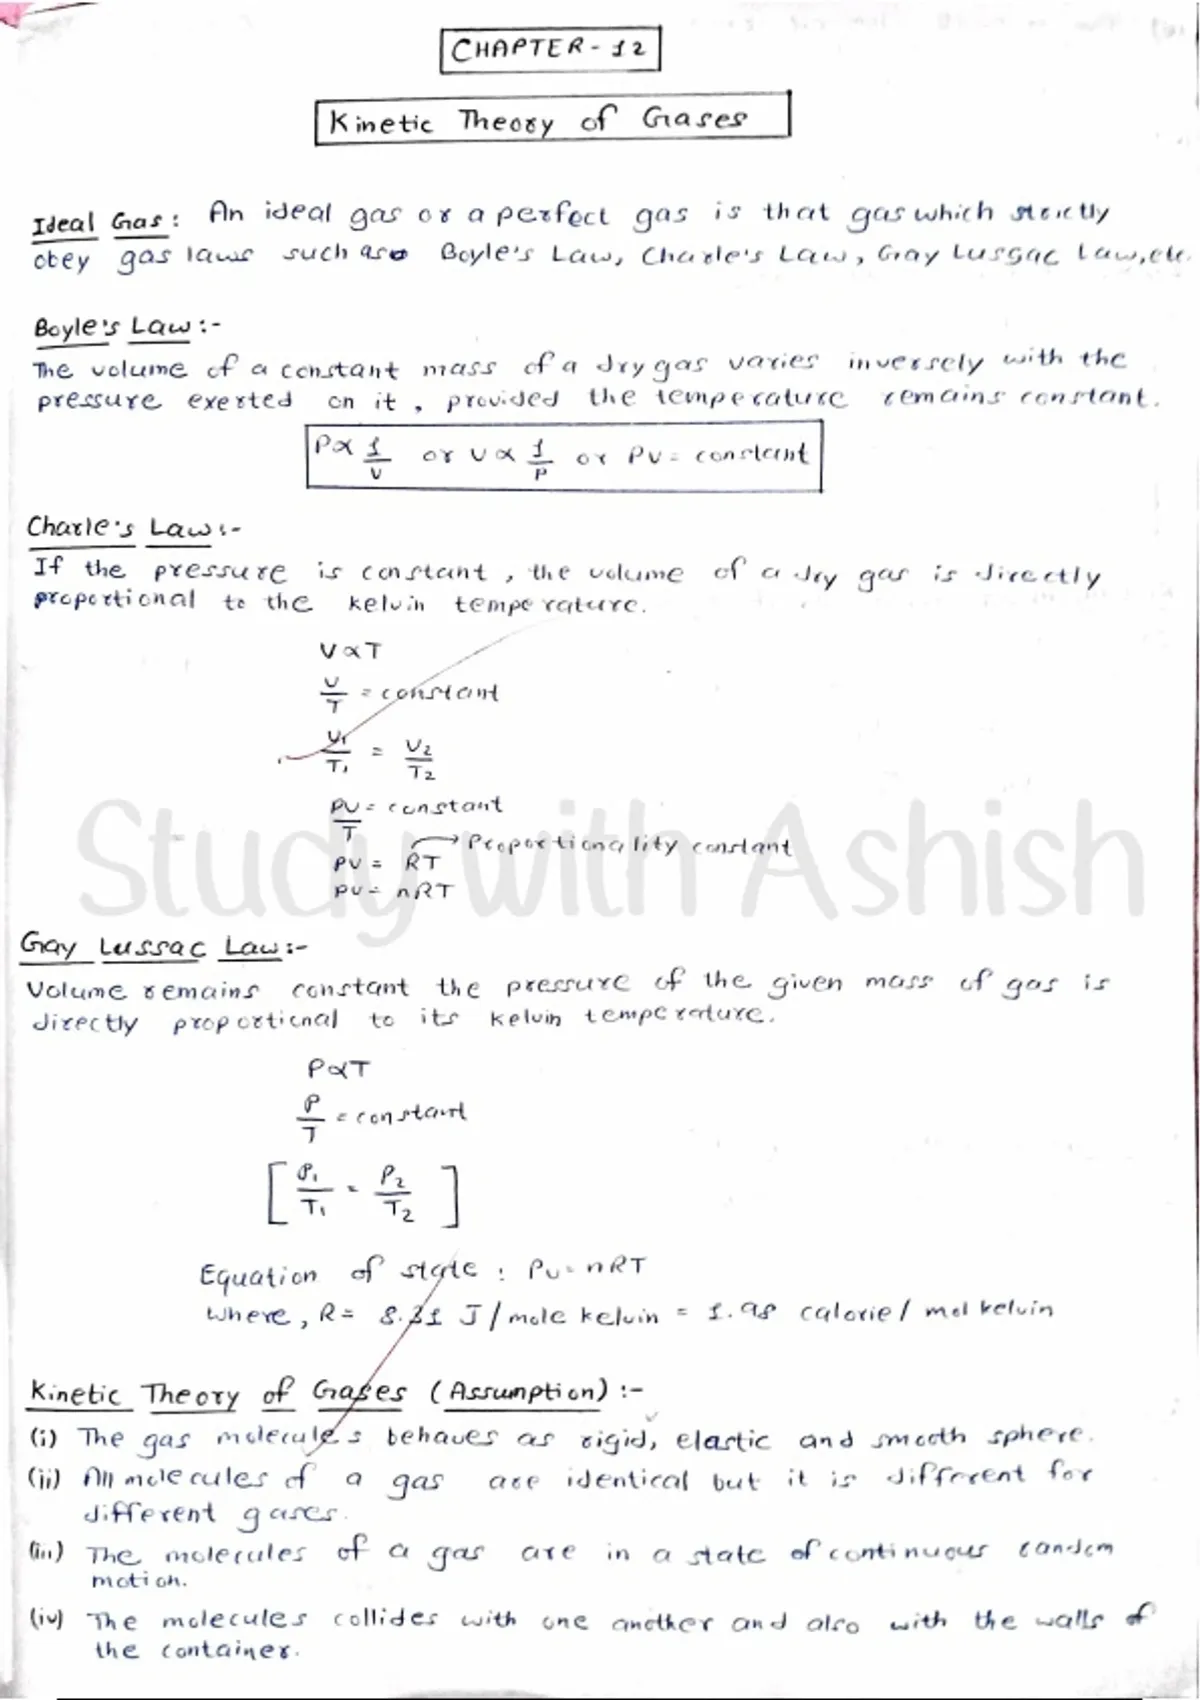 CHAPTER - 12
Kinetic Theory of Gases
Ideal Gas : An ideal gas or a perfect gas is that gas which strictly
obey gas laws such as Boyle's Law, Charle's Law, Gay Lussac Law, etc.
Boyle's Law :-
The volume of a constant mass of a dry gas varies inversely with the
pressure exerted on it , provided the temperature remains constant.
P ∝ 1/V or V ∝ 1/P or PV = constant
Charle's Law :-
If the pressure is constant , the volume of a dry gas is directly
proportional to the kelvin temperature.
V ∝ T
V/T = constant
V1/T1 = V2/T2
PV/T = constant
→ Proportionality constant
PV = RT
PV = nRT
Study with Ashish
Gay Lussac Law :-
Volume remains constant the pressure of the given mass of gas is
directly proportional to its kelvin temperature.
P ∝ T
P/T = constant
[ P1/T1 = P2/T2 ]
Equation of state : PV = nRT
Where , R = 8.31 J / mole kelvin = 1.98 calorie / mol kelvin
Kinetic Theory of Gases (Assumption) :-
(i) The gas molecules behaves as rigid, elastic and smooth sphere.
(ii) All molecules of a gas are identical but it is different for
different gases.
(iii) The molecules of a gas are in a state of continuous random
motion.
(iv) The molecules collides with one another and also with the walls of
the container.